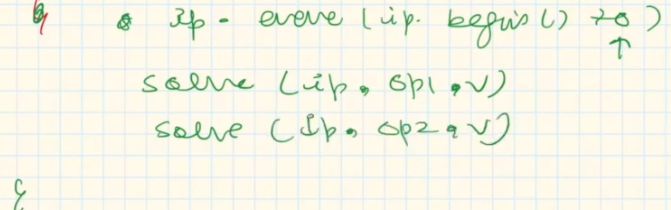 ip. erere (ip. begin() +0)
solve (ip, op1, v)
solve (ip, op2, v)
}